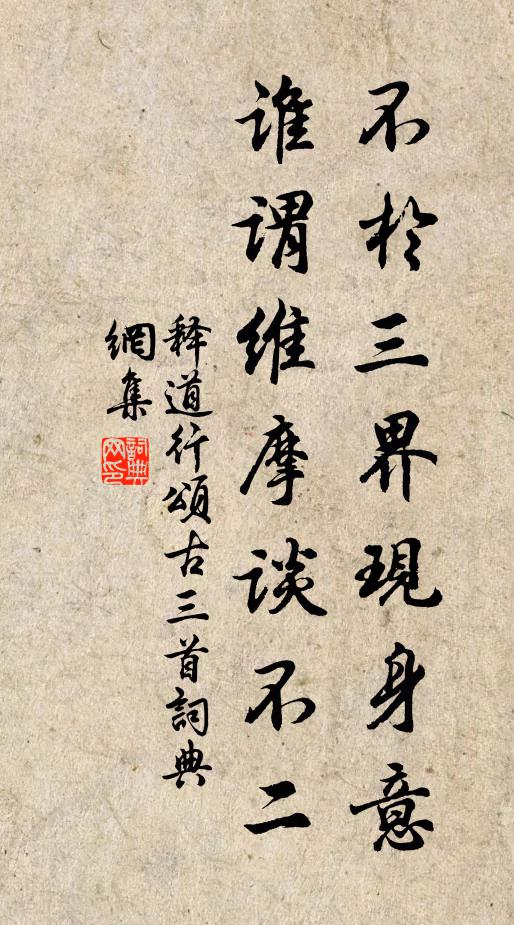 不於三界現身意
誰謂維摩談不二
释道行頌古三首詞典
網集
詞典
网印